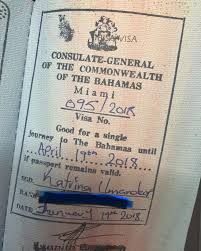 VISA
CONSULATE-GENERAL
OF THE COMMONWEALTH
OF THE BAHAMAS
Miami
095/2018
Visa No.
Good for a single
journey to The Bahamas until
April 19th 2018
if passport remains valid.
SGD. Katrina
RANK
DATE January 19th 2018